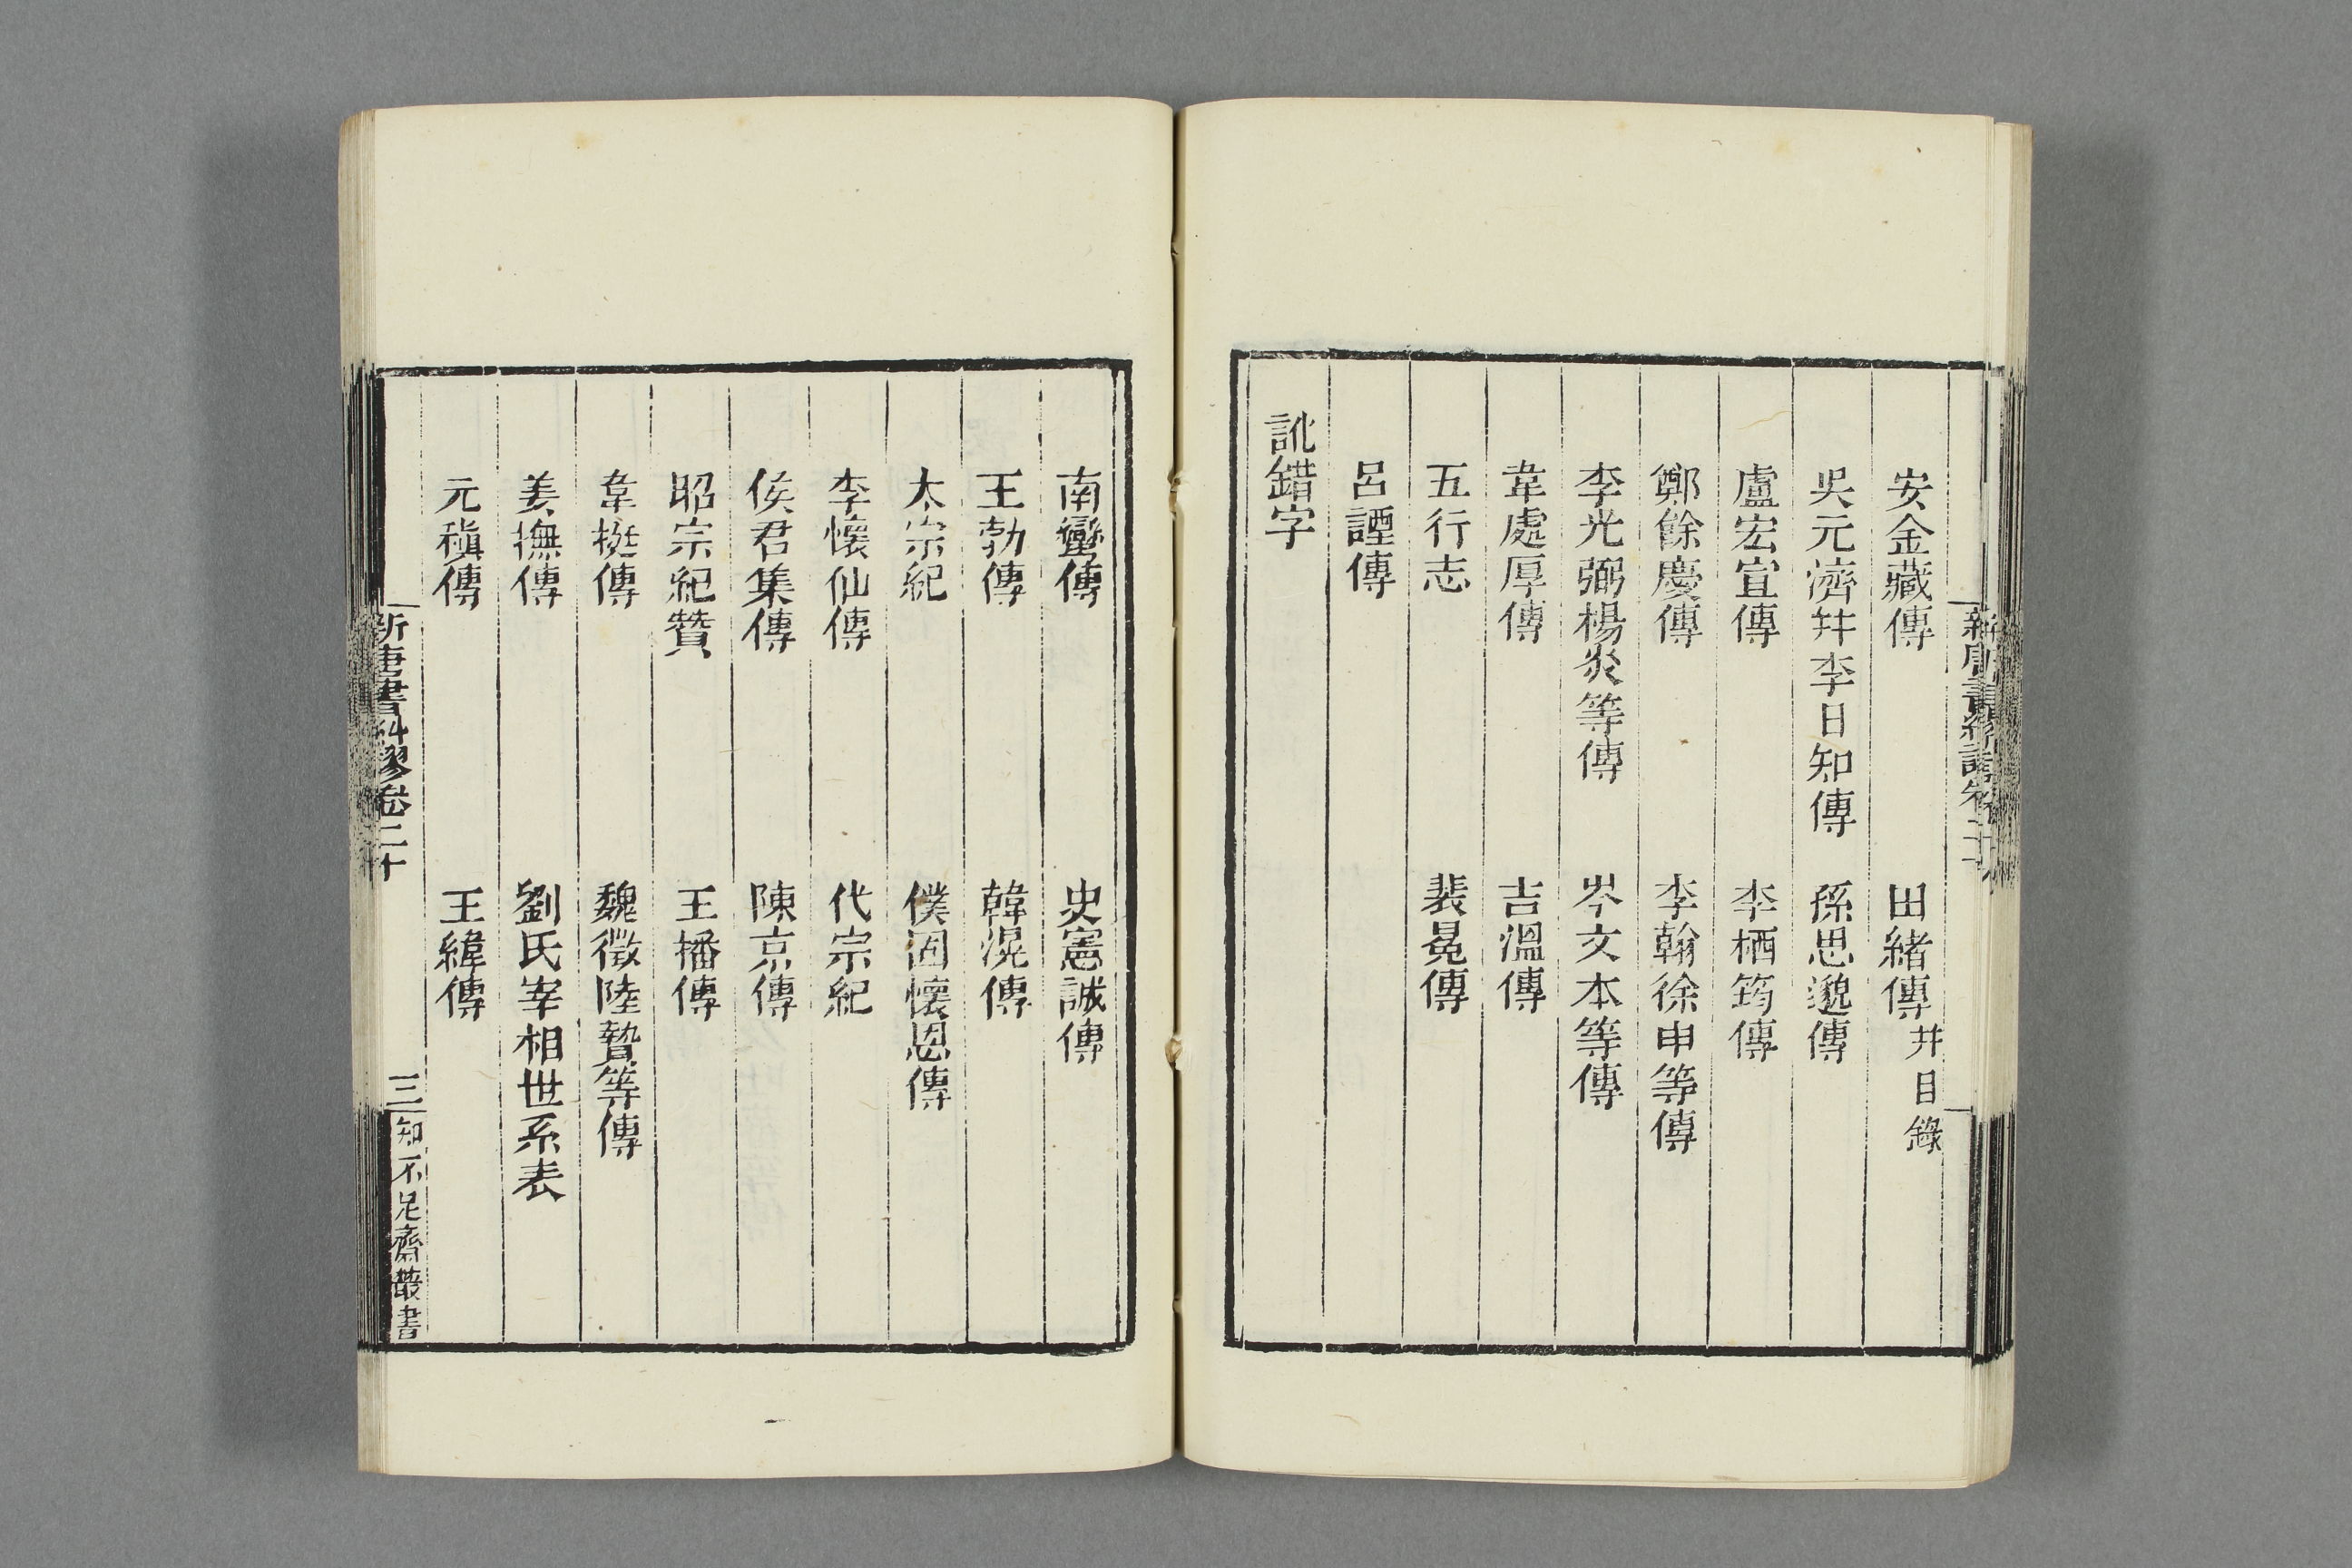 安金藏傳　田緒傳并目錄
吳元濟幷李日知傳　孫思邈傳
盧宏宣傳　李栖筠傳
鄭餘慶傳　李翰徐申等傳
李光弼楊炎等傳　岑文本等傳
韋處厚傳　吉溫傳
五行志　裴冕傳
呂諲傳
訛錯字
南蠻傳　史憲誠傳
王勃傳　韓滉傳
太宗紀　僕固懷恩傳
李懷仙傳　代宗紀
侯君集傳　陳京傳
昭宗紀贊　王播傳
韋挺傳　魏徵陸贄等傳
姜撫傳　劉氏宰相世系表
元稹傳　王緯傳
新唐書糾謬卷二十　三　知不足齋叢書